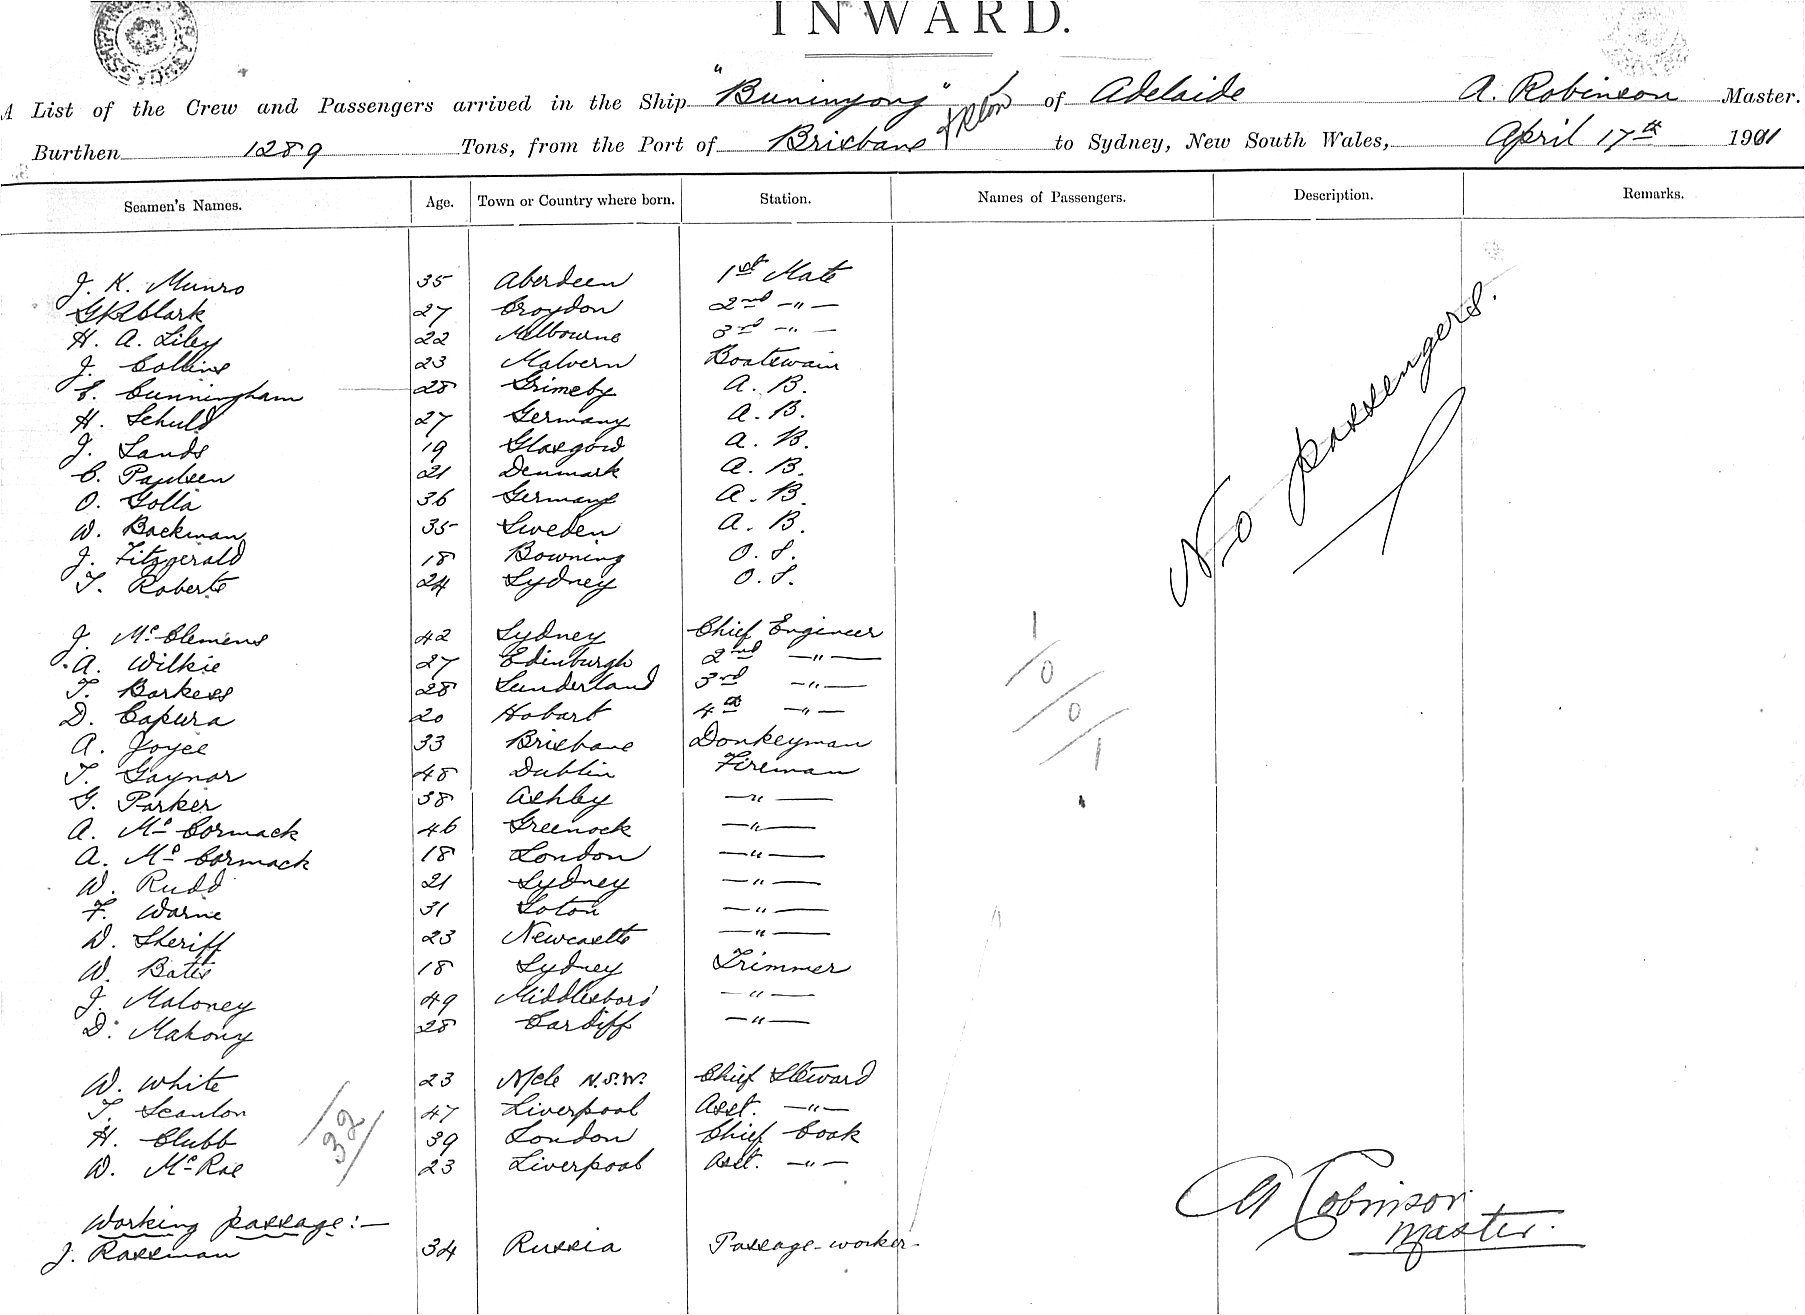 INWARD.
A List of the Crew and Passengers arrived in the Ship "Buninyong" of Adelaide A. Robinson Master.
Burthen 1289 Tons, from the Port of Brisbane to Sydney, New South Wales, April 17th 1901
Seamen's Names. Age. Town or Country where born. Station. Names of Passengers. Description. Remarks.
J. K. Munro 35 Aberdeen 1st Mate
G R Clark 27 Croydon 2nd —"—
H. A. Liley 22 Melbourne 3rd —"—
J. Collins 23 Malvern Boatswain
28 Grimsby A. B.
Cunningham
H. Schuld 27 Germany A. B.
J. Sands 19 Glasgow A. B.
C. Paulsen 21 Denmark A. B.
O. Golla 36 Germany A. B.
W. Backman 35 Sweden A. B.
J. Fitzgerald 18 Bowning O. S.
T. Roberts 24 Sydney O. S.
No passengers.
J. McClemens 42 Sydney Chief Engineer
A. Wilkie 27 Edinburgh 2nd —"—
T. Barkess 28 Sunderland 3rd —"—
D. Capura 20 Hobart 4th —"—
A. Joyce 33 Brisbane Donkeyman
T. Gaynor 48 Dublin Fireman
G. Parker 38 Ashby —"—
A. McCormack 46 Greenock —"—
A. McCormack 18 London —"—
W. Rudd 21 Sydney —"—
F. Warne 31 Soton —"—
W. Sheriff 23 Newcastle —"—
W. Bates 18 Sydney Trimmer
J. Maloney 49 Middlesboro' —"—
D. Mahony 28 Cardiff —"—
1/0/0/1
W. White 23 N/cle N.S.W. Chief Steward
T. Scanlon 47 Liverpool Asst. —"—
H. Clubb 39 London Chief Cook
W. McRae 23 Liverpool Asst. —"—
/32/
Working passage:—
J. Rassman 34 Russia Passage-worker
A Robinson
Master.